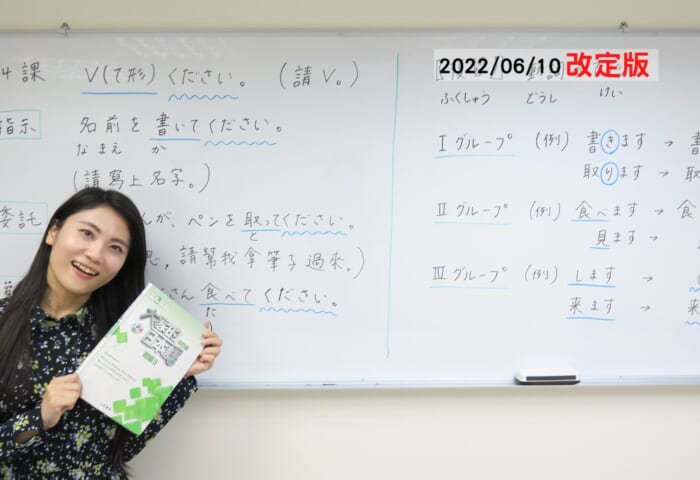 4課 V(て形)ください。 (請V。)
指示 名前を書いてください。
なまえ か
(請寫上名字。)
委託 んが、ペンを取ってください。
と
請幫我拿筆子過來。)
さん食べてください。
た
2022/06/10 改定版
ふくしゅう どうし けい
Ⅰグループ (例) 書きます →
取ります → 取
Ⅱグループ (例) 食べます → 食
見ます →
Ⅲグループ (例) します →
来ます →
大家的日本語
初級Ⅱ